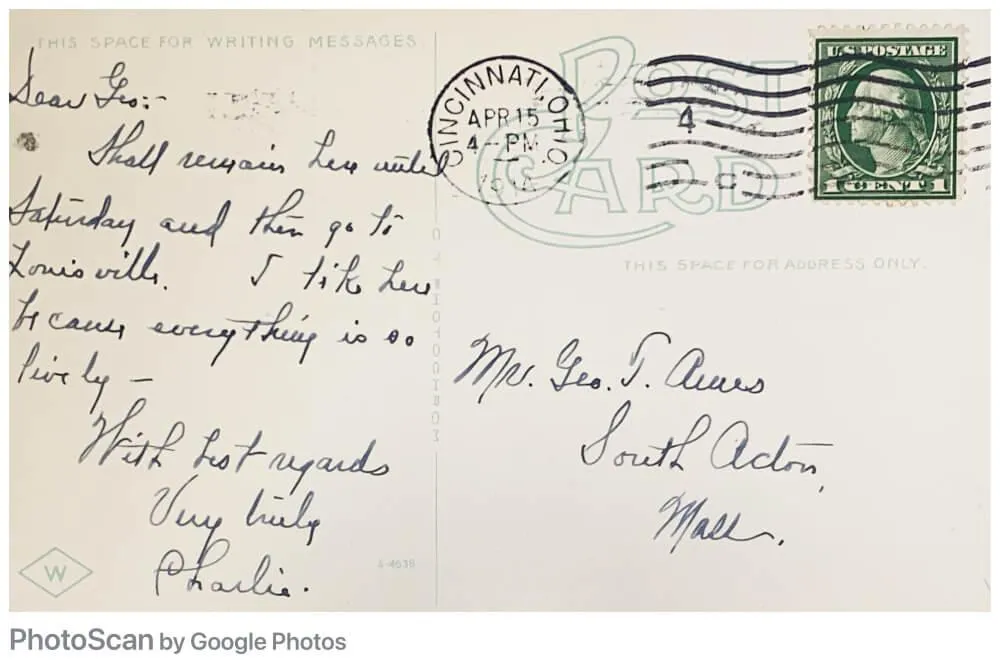 THIS SPACE FOR WRITING MESSAGES
Dear Geo:-
Shall remain here until
Saturday and then go to
Louisville. I like here
because everything is so
lively -
With best regards
Very truly
Charlie.
W
A-4638
CINCINNATI, OHIO.
APR 15
4 - PM
4
C
POST
CARD
U.S. POSTAGE
1 CENT 1
THIS SPACE FOR ADDRESS ONLY.
Mr. Geo. T. Ames
South Acton,
Mass.
PhotoScan by Google Photos